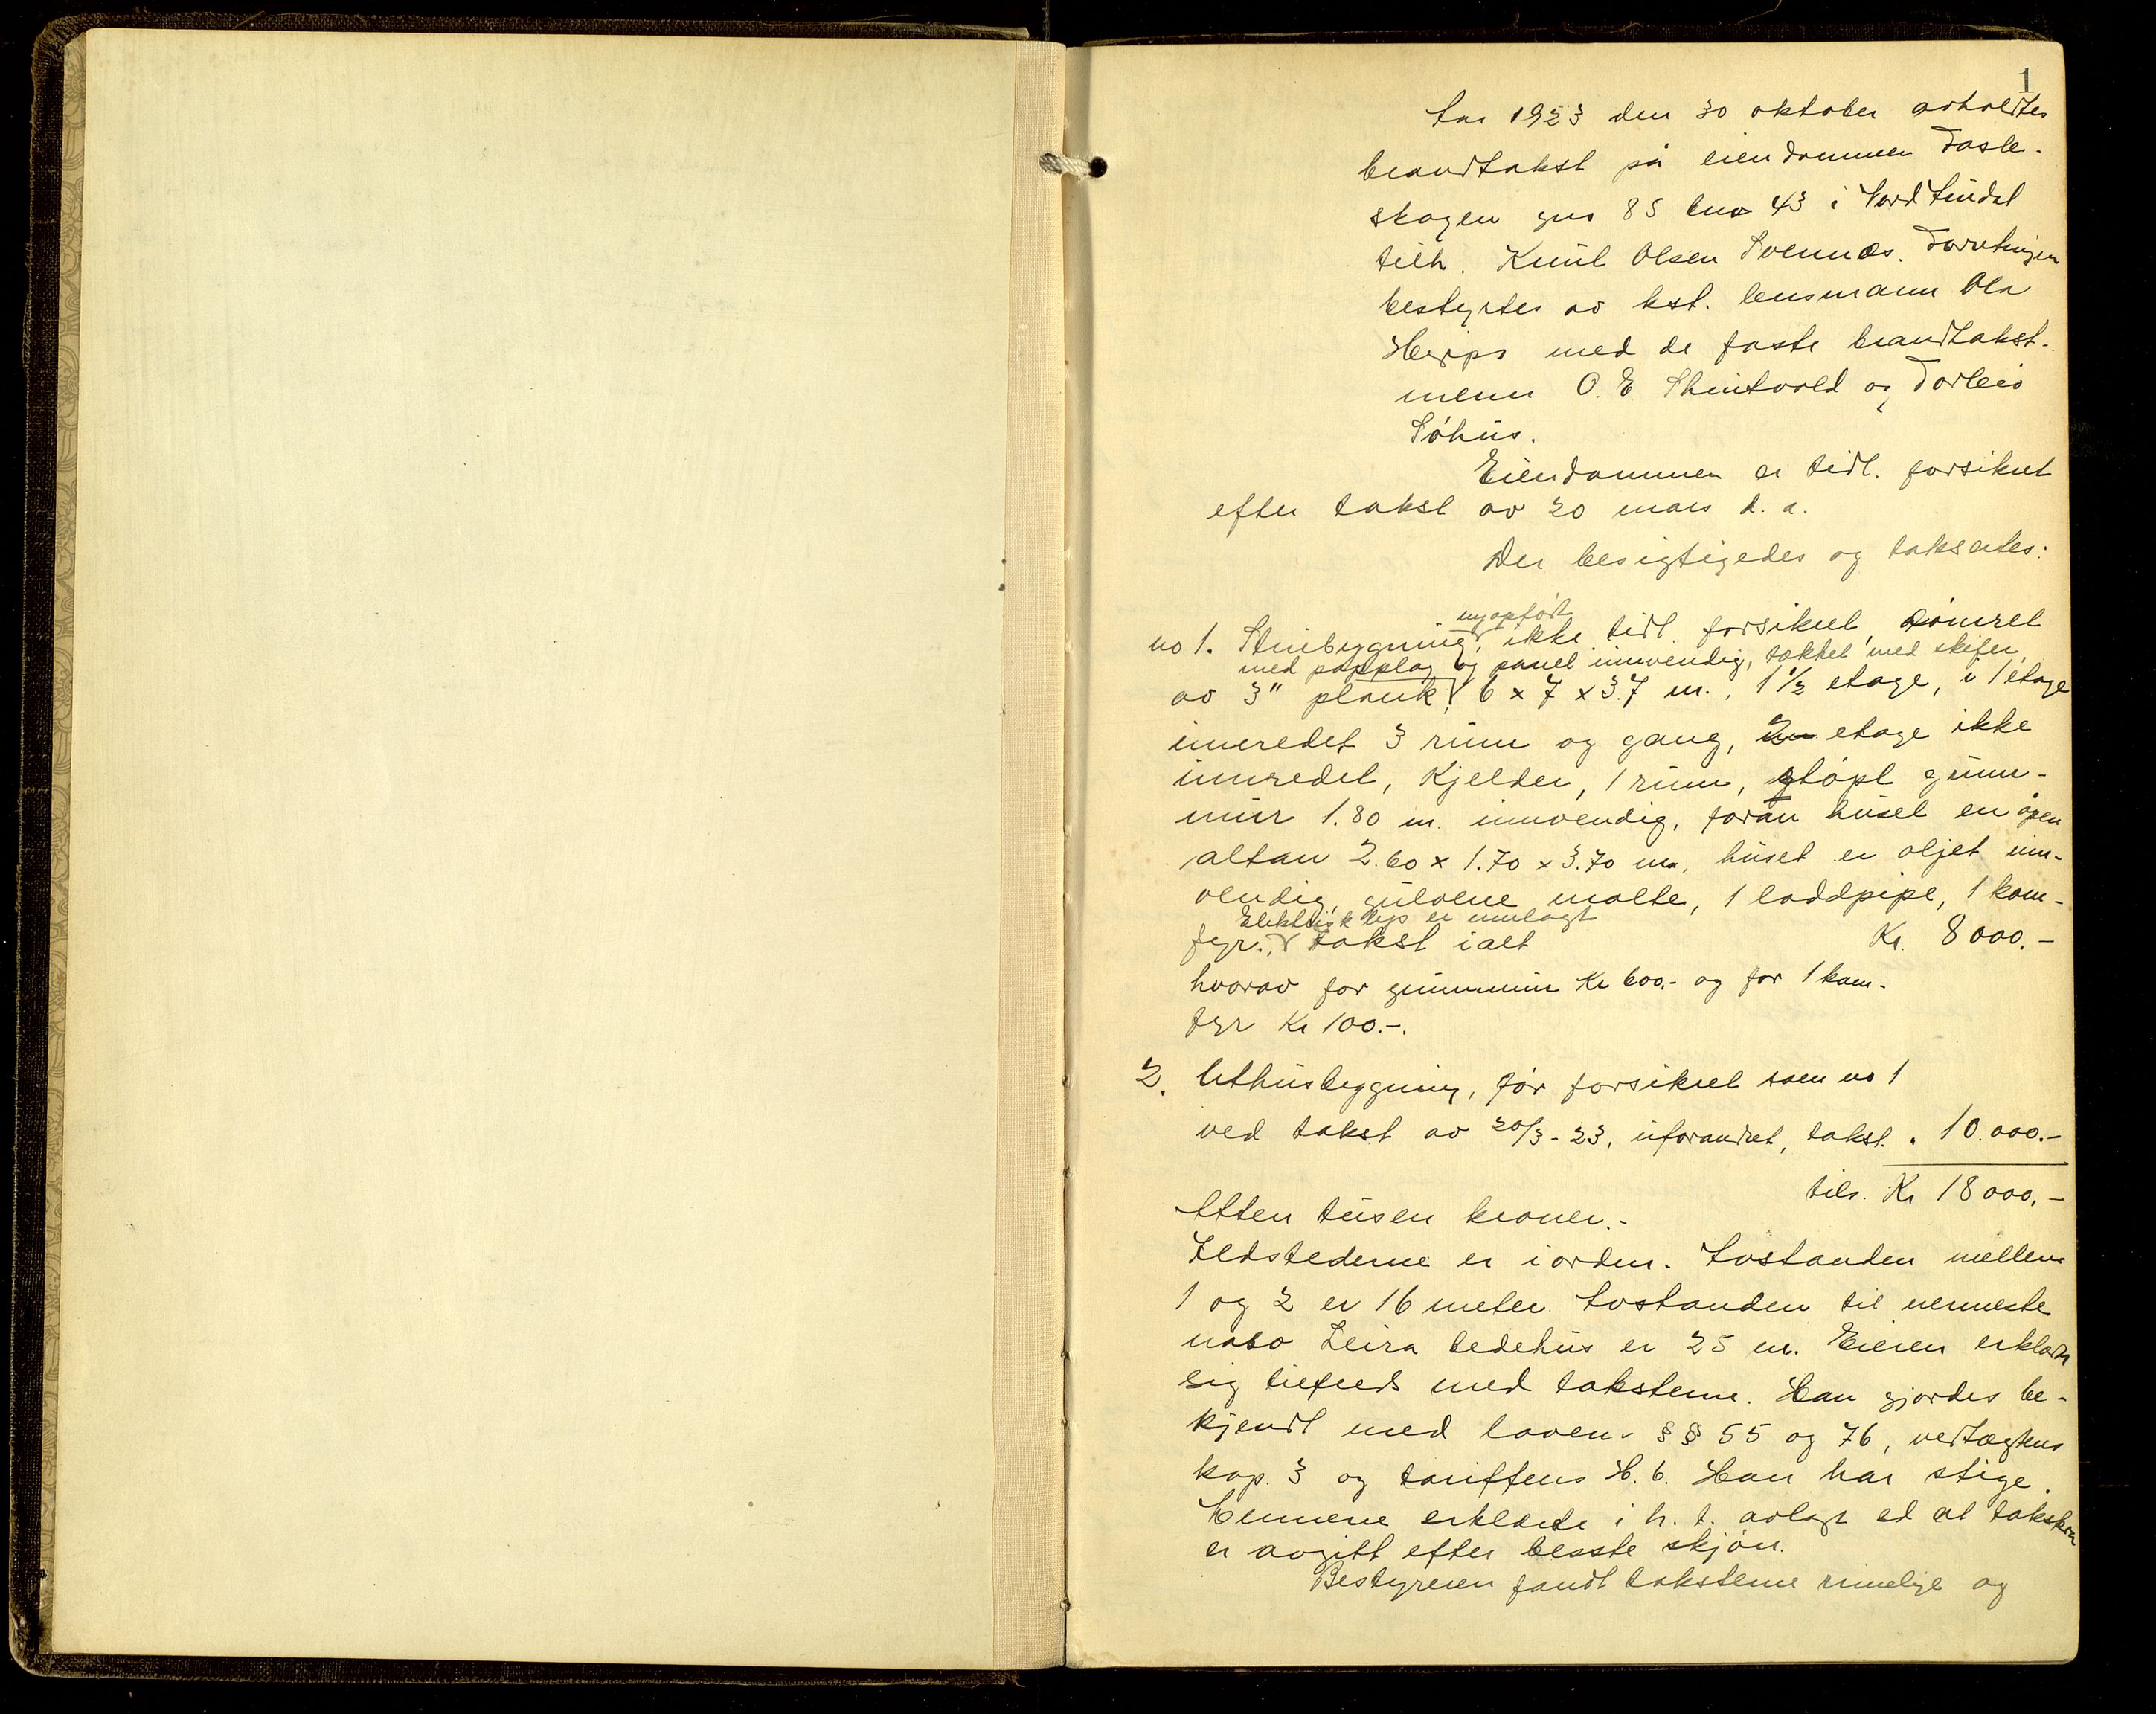 1
Aar 1923 den 30 oktober avholdtes
brandtakst på eiendommen Fasle-
skogen gno 85 bno 43 i Nord Aurdal
tilh. Knut Olsen Svennes. Forretningen
bestyrtes av kst. lensmann Ola
med de faste brandtakst-
menn O. E. og Torleiv
Söhus.
Eiendommen er tidl. forsikret
efter takst av 20 mars d. a.
Der besigtigedes og taksertes:
nyopført
no 1. Stuebygning, ikke tidl. forsikret, tömret
med papplag og panel innvendig, tækket med skifer,
av 3" plank, 6 x 7 x 3.7 m., 1 1/2 etage, i 1 etage
innredet 3 rum og gang, 2 etage ikke
innredet, Kjelder, 1 rum, støpt grunn-
mur 1.80 m. innvendig, foran huset en åpen
altan 2.60 x 1.70 x 3.70 m, huset er oljet inn-
vendig, gulvene malte, 1 loddpipe, 1 kom-
Elektrisk lys er innlagt
fyr., takst ialt Kr. 8000.-
hvorav for grunnmur Kr 600.- og for 1 kom-
fyr Kr 100.-.
2. Uthusbygning, før forsikret som no 1
ved takst av 20/3-23, uforandret, takst " 10.000.-
tils. Kr 18000.-
Atten tusen kroner.-
Ildstederne er iorden. Avstanden mellem
1 og 2 er 16 meter. Avstanden til nermeste
nabo Leira bedehus er 25 m. Eieren erklærte
sig tilfreds med taksterne. Han gjordes be-
kjendt med loven §§ 55 og 76, vedtægtens
kap. 3 og tariffens H. 6. Han har stige.
Mennene erklærte i h. t. avlagt ed at taksten
er avgitt efter beste skjön.
Bestyreren fandt taksterne rimelige og